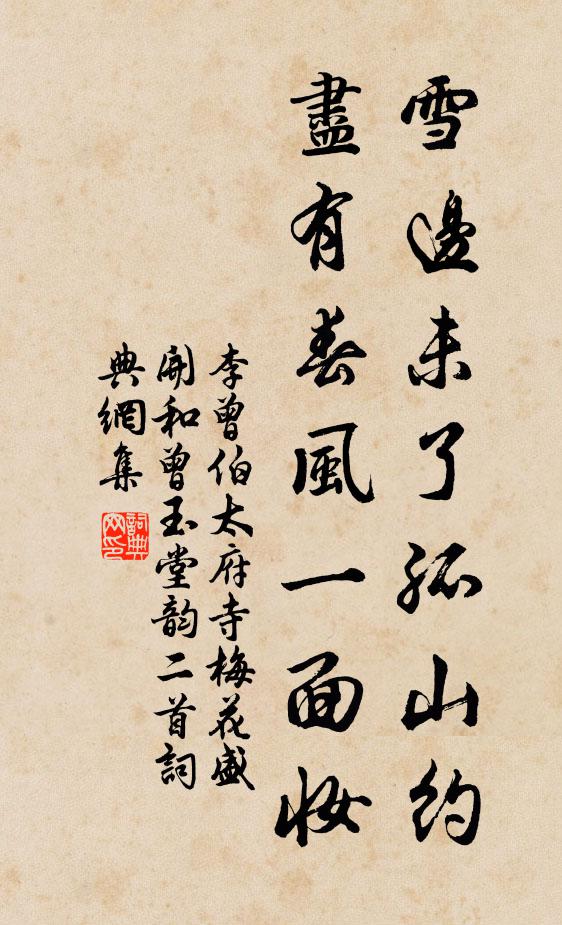 雪邊未了孤山約
盡有春風一面妝
李曾伯太府寺梅花盛
開和曾玉堂韵二首詞
典網集
詞典
网印